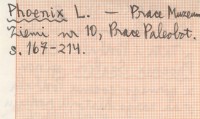 Phoenix L. — Prace Muzeum
Ziemi nr 10, Prace Paleobot.
s. 167-214.